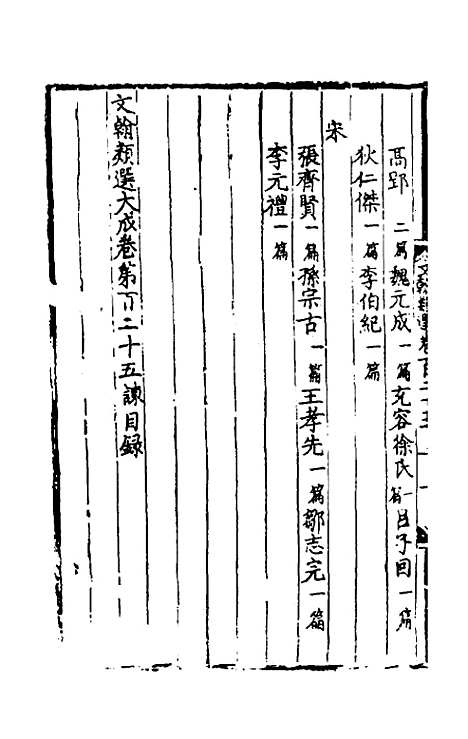 高郢 二篇 魏元成 一篇 充容徐氏 一篇 呂子囘 一篇
狄仁傑 一篇 李伯紀 一篇
宋
張齊賢 一篇 孫宗古 一篇 王孝先 一篇 鄒志完 一篇
李元禮 一篇
文翰類選大成卷第百二十五諫目録